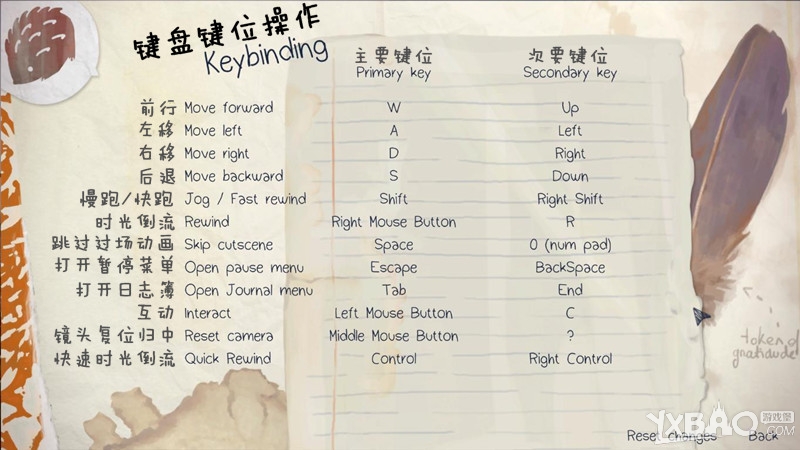 键盘键位操作
Keybinding
主要键位 次要键位
Primary key Secondary key
前行 Move forward W Up
左移 Move left A Left
右移 Move right D Right
后退 Move backward S Down
慢跑/快跑 Jog / Fast rewind Shift Right Shift
时光倒流 Rewind Right Mouse Button R
跳过过场动画 Skip cutscene Space 0 (num pad)
打开暂停菜单 Open pause menu Escape BackSpace
打开日志簿 Open Journal menu Tab End
互动 Interact Left Mouse Button C
镜头复位归中 Reset camera Middle Mouse Button ?
快速时光倒流 Quick Rewind Control Right Control
token of
gratitude
Reset changes Back
YXBAO 游戏堡
.COM